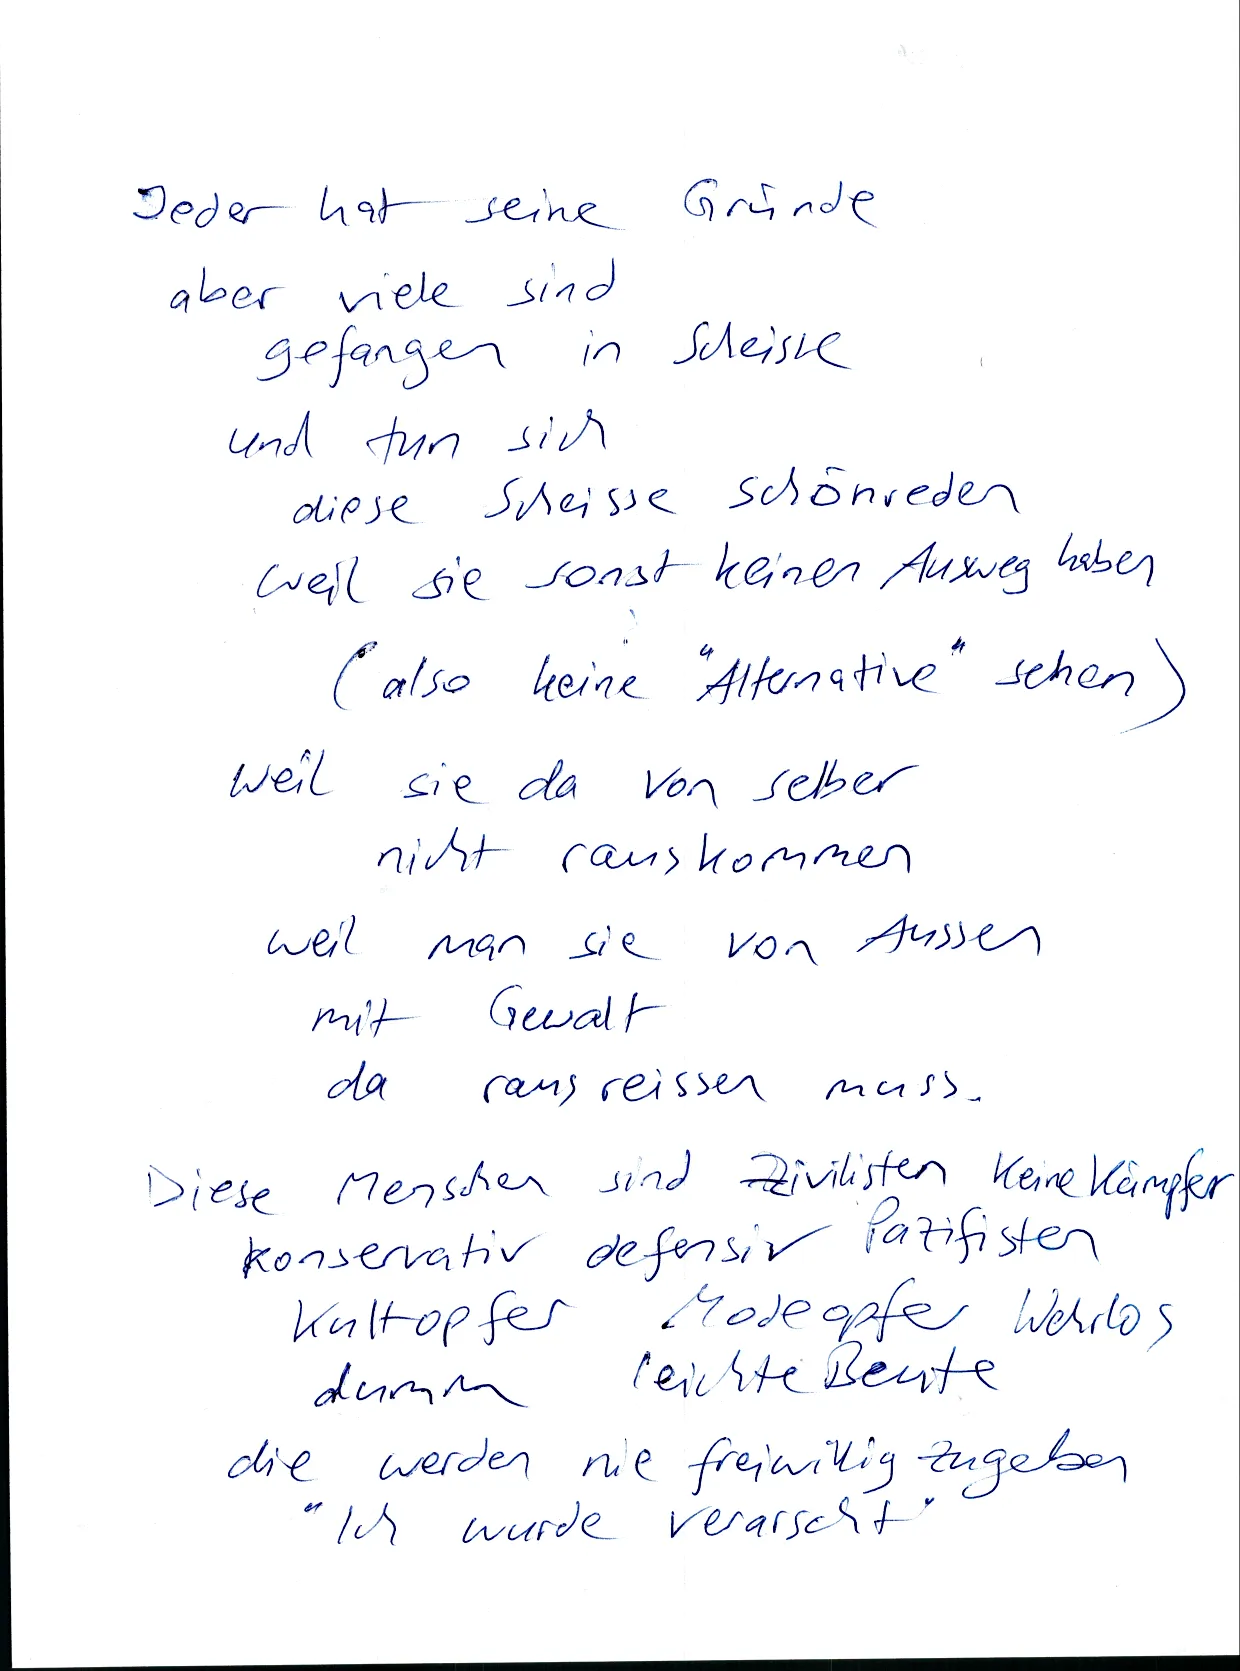 Jeder hat seine Gründe
aber viele sind
gefangen in Scheisse
und tun sich
diese Scheisse schönreden
weil sie sonst keinen Ausweg haben
(also keine "Alternative" sehen)
weil sie da von selber
nicht rauskommen
weil man sie von Aussen
mit Gewalt
da rausreissen muss.
Diese Menschen sind Zivilisten keine Kämpfer
konservativ defensiv Pazifisten
Kultopfer Modeopfer Wehrlos
dumm leichte Beute
die werden nie freiwillig zugeben
"Ich wurde verarscht"